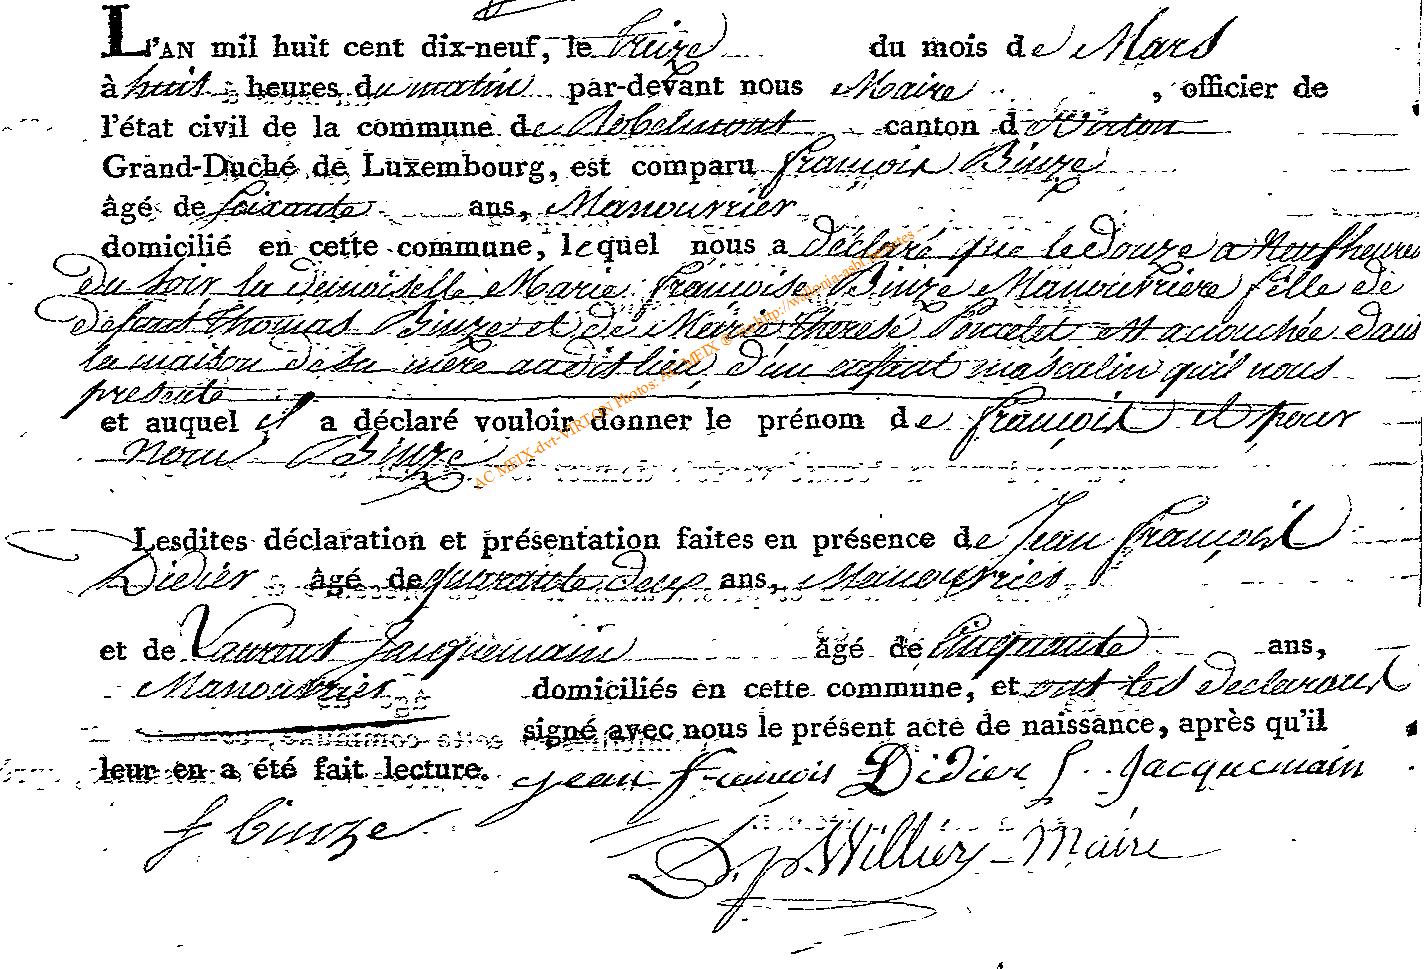 L'AN mil huit cent dix-neuf, le treize du mois de Mars
à huit heures du matin par-devant nous Maire , officier de
l'état civil de la commune de Robelmont canton de Virton
Grand-Duché de Luxembourg, est comparu françois Binze
âgé de soixante ans, Manouvrier
domicilié en cette commune, lequel nous a déclaré que le douze a Neuf heures
du soir la demoiselle Marie françoise Binze Manouvriere fille de
defunt thomas Binze et de Marie therese Poncelet est accouchée dans
la maison de sa mere audit lieu, d'un enfant masculin qu'il nous
presente
et auquel il a déclaré vouloir donner le prénom de françois et pour
nom Binze
Lesdites déclaration et présentation faites en présence de Jean françois
Didier âgé de quarante deux ans, Manouvrier
et de Laurent Jacquemain âgé de Cinquante ans,
Manouvrier domiciliés en cette commune, et ont les declarans
signé avec nous le présent acte de naissance, après qu'il
leur en a été fait lecture. jean françois Didier L. Jacquemain
f binze
D. p. Willier Maire
AC MEIX-dvt-VIRTON Photos: AC MEIX